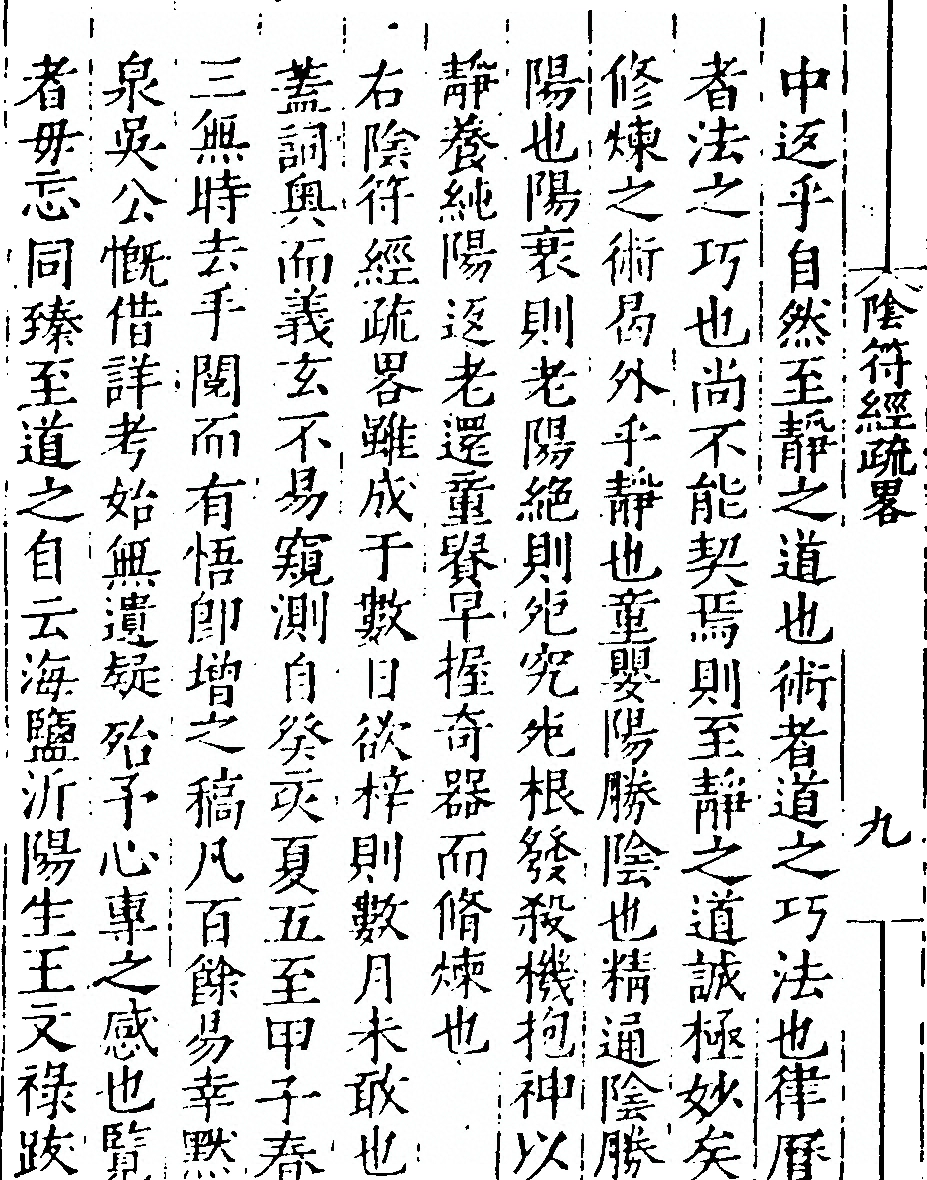 陰符經疏畧
九
中返乎自然至靜之道也術者道之巧法也律曆
者法之巧也尚不能契焉則至靜之道誠極妙矣
修煉之術曷外乎靜也童嬰陽勝陰也精通陰勝
陽也陽衰則老陽絕則死究死根發殺機抱神以
靜養純陽返老還童賢早握奇器而脩煉也
右陰符經疏畧雖成于數日欲梓則數月未敢也
蓋詞奥而義玄不易窺測自癸亥夏五至甲子春
三無時去手閱而有悟卽增之稿凡百餘易幸默
泉吳公慨借詳考始無遺疑殆予心專之感也覧
者毋忘同臻至道之自云海鹽沂陽生王文祿跋